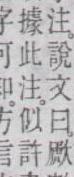 注。說文曰厥
據此注。似許
字可知。方言